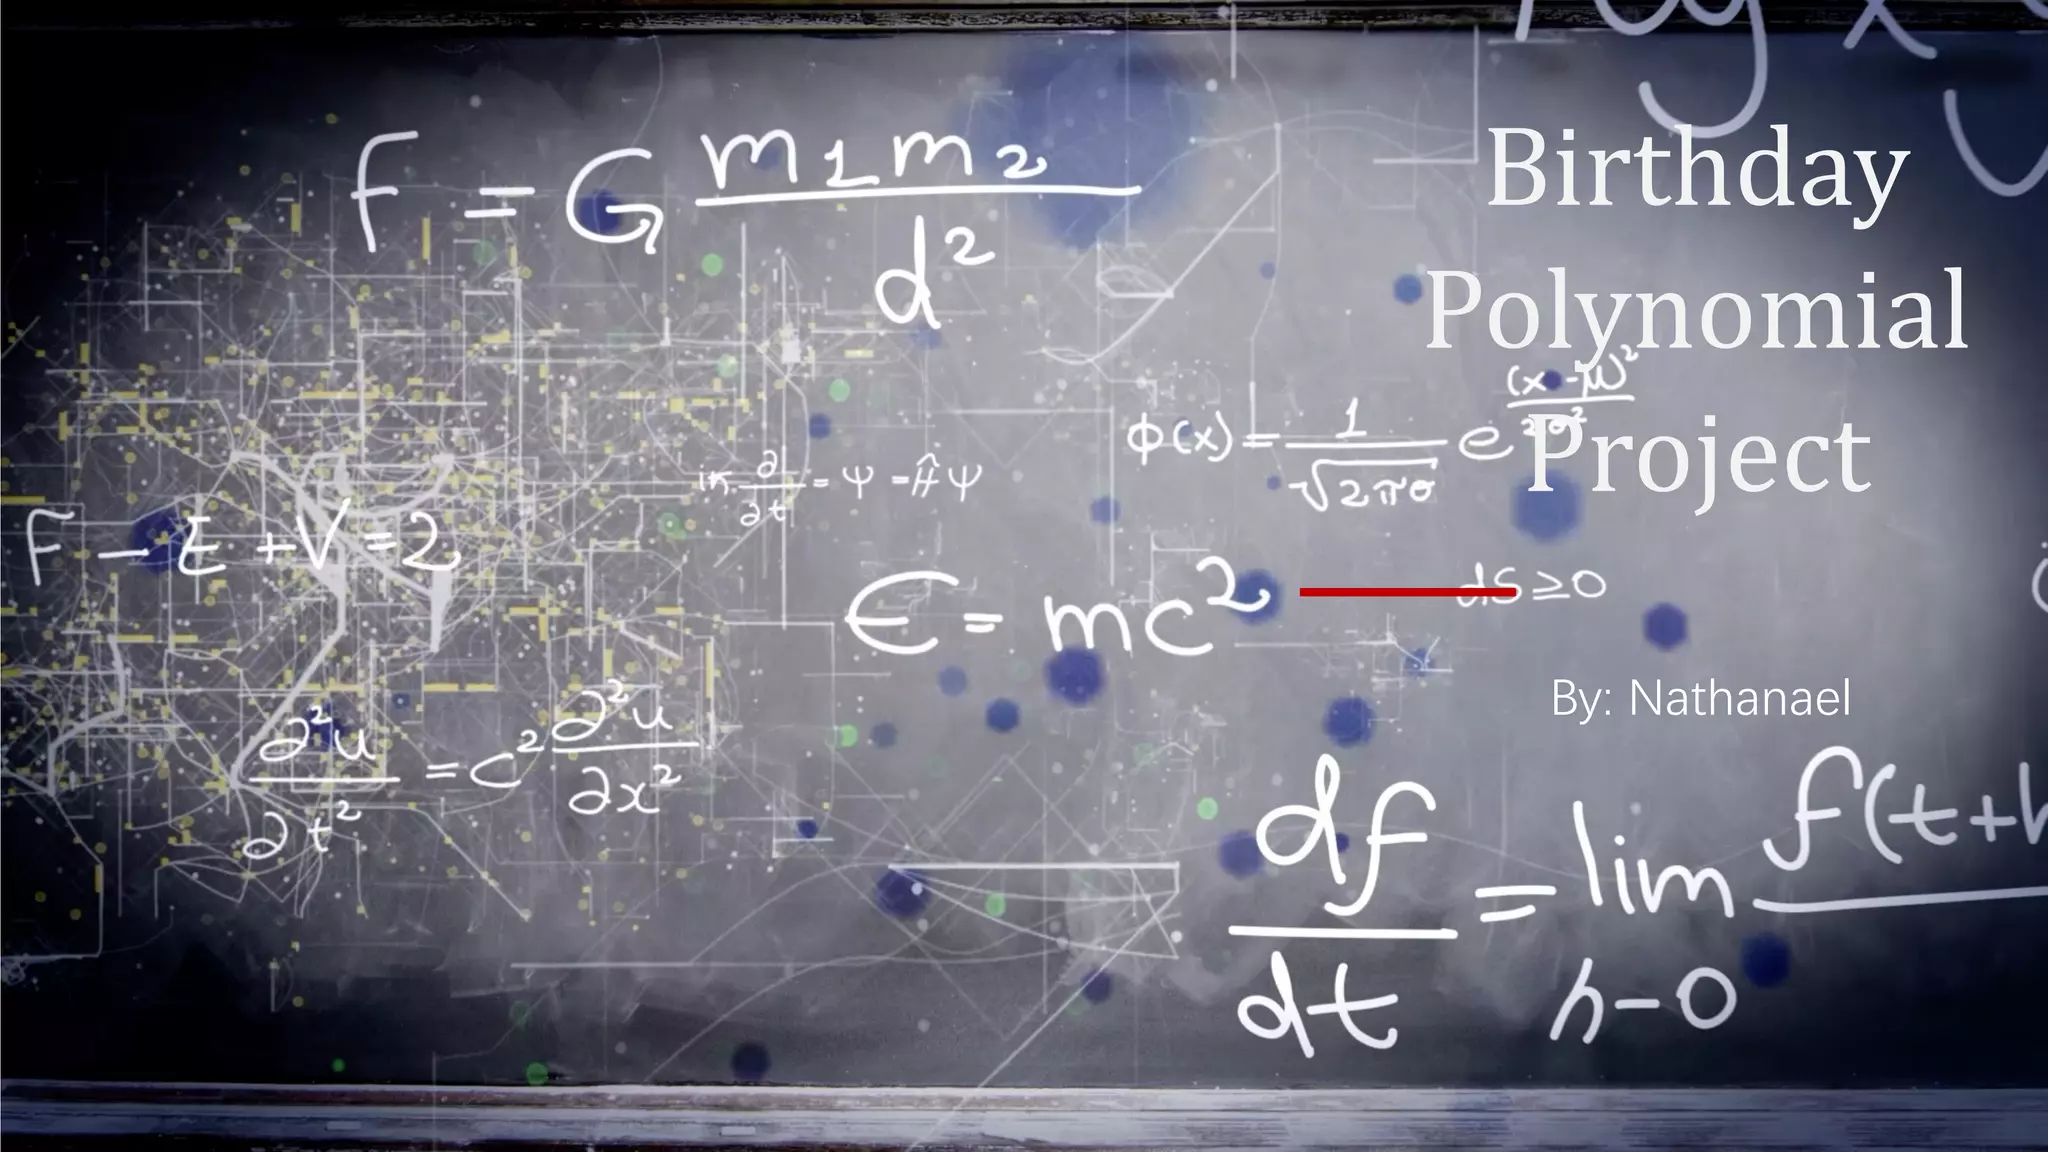 Birthday
Polynomial
Project
By: Nathanael
F = G m₁m₂ / d²
ϕ(x) = 1 / √2πσ e (x-μ)² / 2σ²
∂ / ∂t = Ψ = Ĥ Ψ
F - E + V = 2
E = mc²
dS ≥ 0
∂²u / ∂t² = c² ∂²u / ∂x²
df / dt = lim h-0 f(t+h